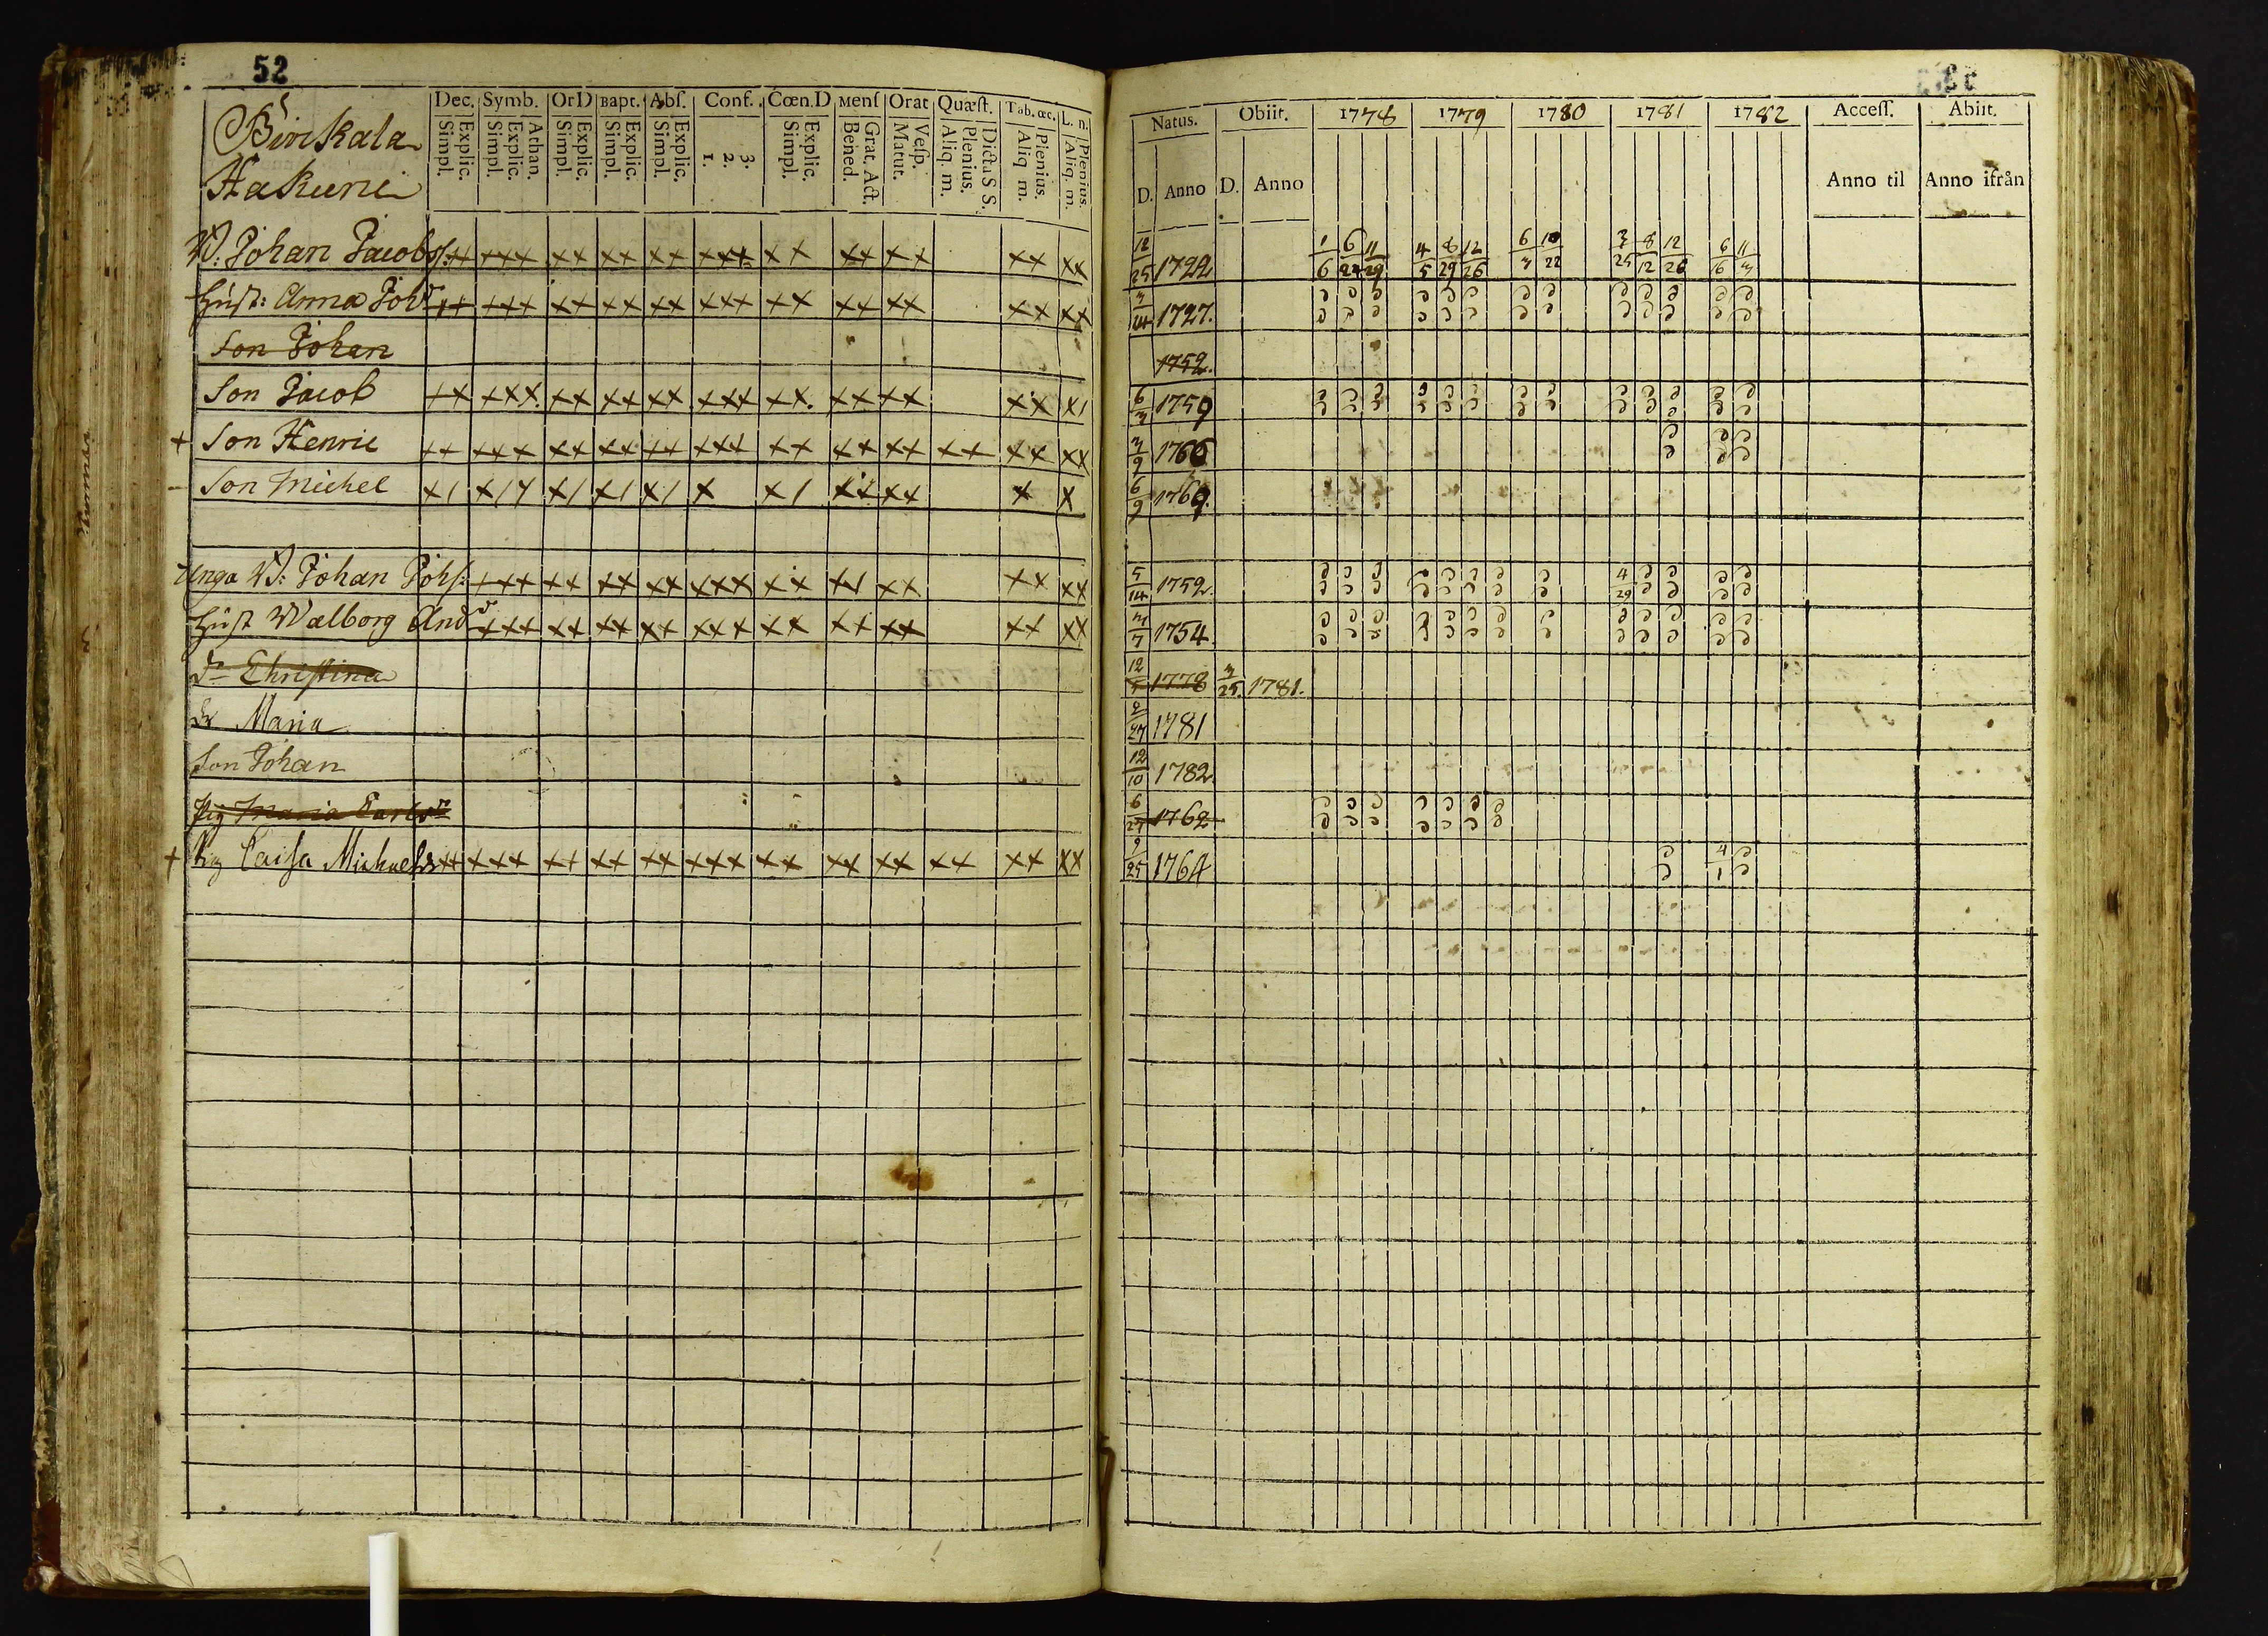 52
Dec. Symb. OrD Bapt. Abſ. Conf. Cœn.D Menſ Orat Quæſt. Tab. œc. L. n.
Explic. Simpl. Athan. Explic. Simpl. Explic. Simpl. Explic. Simpl. Explic. Simpl. 3. 2. 1. Explic. Simpl. Grat. Act. Bened. Veſp. Matut. Dicta S S. Plenius. Aliq. m. Plenius. Aliq m. Plenius. Aliq. m.
Hakuni
Natus. Obiit. 1778 1779 1780 1781 1782 Acceſſ. Abiit.
D. Anno D. Anno Anno til Anno ifrån
W: Johan Jacobſ: 12/25 1722 1/6 6/24 11/29 4/5 8/29 12/26 6/3 10/22 3/25 8/12 12/26 6/16 11/3
Huſt: Anna Johdr 3/14 1727.
Son Johan 1752.
Son Jacob 6/3 1759
+ Son Henric 3/9 1766
Son Michel 6/9 1769.
Unga W: Johan Johſ: 5/14 1752. 4/29
Huſt Walborg Anddr 3/7 1754.
Dr Chriſtina 12 1778 3/25 1781.
Dr Maria 2/27 1781
Son Johan 12/10 1782.
Pig Maria Carlsdr 6/27 1762
+ Pig Caiſa Michaelsdr 9/25 1764 4/1